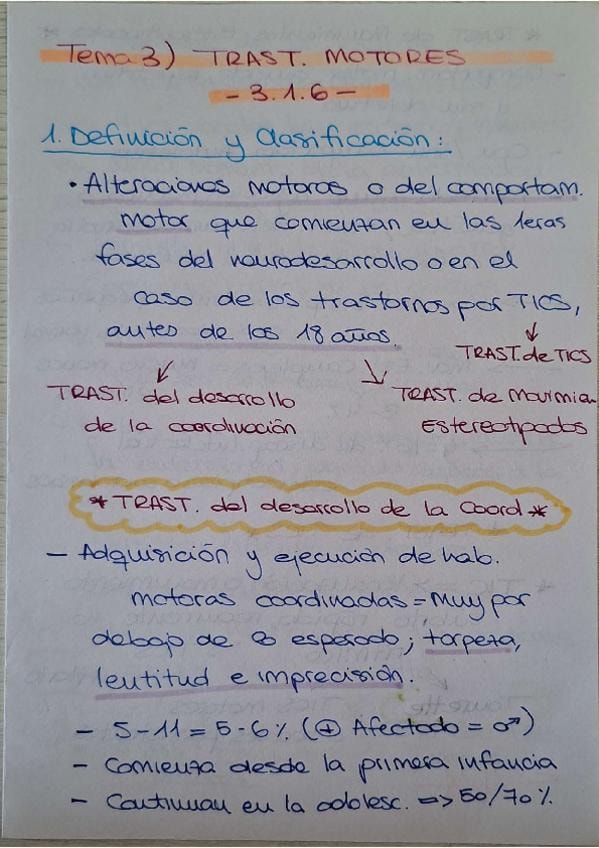 Tema 3) TRAST. MOTORES
- 3.1.6 -
1. Definición y Clasificación:
• Alteraciones motoras o del comportam.
motor que comienzan en las 1eras
fases del neurodesarrollo o en el
caso de los trastornos por TICS,
antes de los 18 años.
TRAST. de TICS
TRAST. del desarrollo
de la coordinación
TRAST. de Movimien
Estereotipados
* TRAST. del desarrollo de la Coord *
- Adquisición y ejecución de hab.
motoras coordinadas = Muy por
debajo de lo esperado; torpeza,
lentitud e imprecisión.
- 5-11 = 5-6% (⊕ Afectado = ♂)
- Comienza desde la primera infancia
- Continuan en la adolesc. => 50/70%